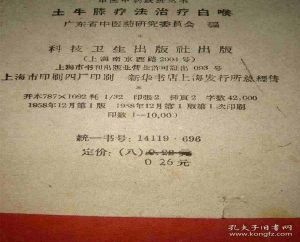 土牛膝疗法治疗白喉
广东省中医药研究委员会 编
科技卫生出版社出版
(上海南京西路2004号)
上海市书刊出版业营业许可证出093号
上海市印刷四厂印刷 新华书店上海发行所总经售
开本787×1092 耗1/32 印张2 插页2 字数42,000
1958年12月第1版 1958年12月第1版第1次印刷
印数1—10,00)
统一书号:14119·696
定价:(八) 0.28元
0 26元
孔夫子旧书网